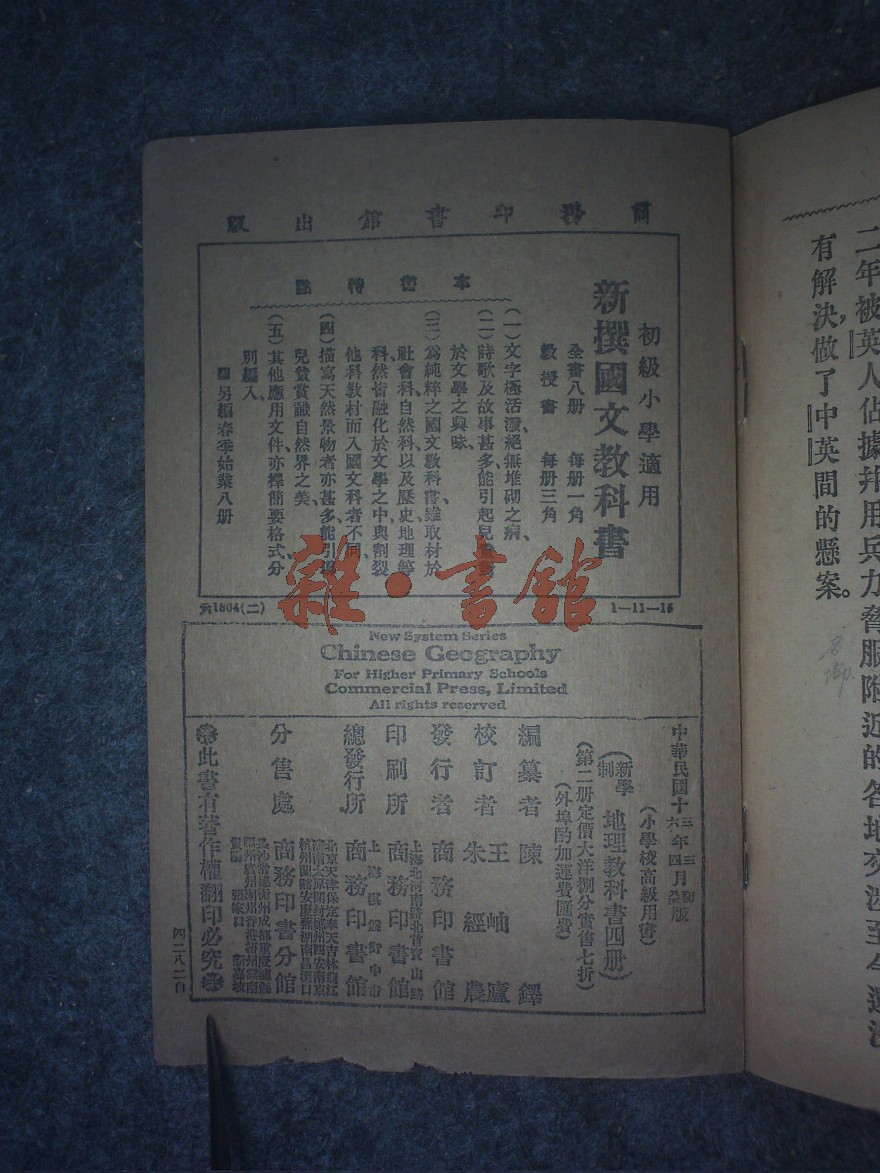 商務印書館出版
初級小學適用
新撰國文教科書
全書八册 每册一角
教授書 每册三角
本書特點
(一)文字極活潑、絕無堆砌之病、
(二)詩歌及故事甚多、能引起兒童
於文學之興味、
(三)爲純粹之國文教科書、雖取材於
社會科、自然科、以及歷史、地理等
科、然皆融化於文學之中、與割裂
他科教材而入國文科者不同、
(四)描寫天然景物者亦甚多、能引
兒童賞識自然界之美、
(五)其他應用文件、亦擇簡要格式、分
別編入、
另編春季始業八册
1804(二)
1—11—15
New System Series
Chinese Geography
For Higher Primary Schools
Commercial Press, Limited
All rights reserved
中華民國十三年三月初版
六年四月
(小學校高級用書)
(新學制 地理教科書四册)
(第二册定價大洋捌分實售七折)
(外埠酌加運費匯費)
編纂者 陳鐸
王岫廬
校訂者 朱經農
發行者 商務印書館
印刷所 上海北河南路北首寶山路 商務印書館
總發行所 上海棋盤街中市 商務印書館
分售處 商務印書分館
此書有著作權翻印必究
四二八二自
二年被英人佔據、幷用兵力脅服附近的各地、交涉至今還沒
有解決、做了中英間的懸案。
雜·書館